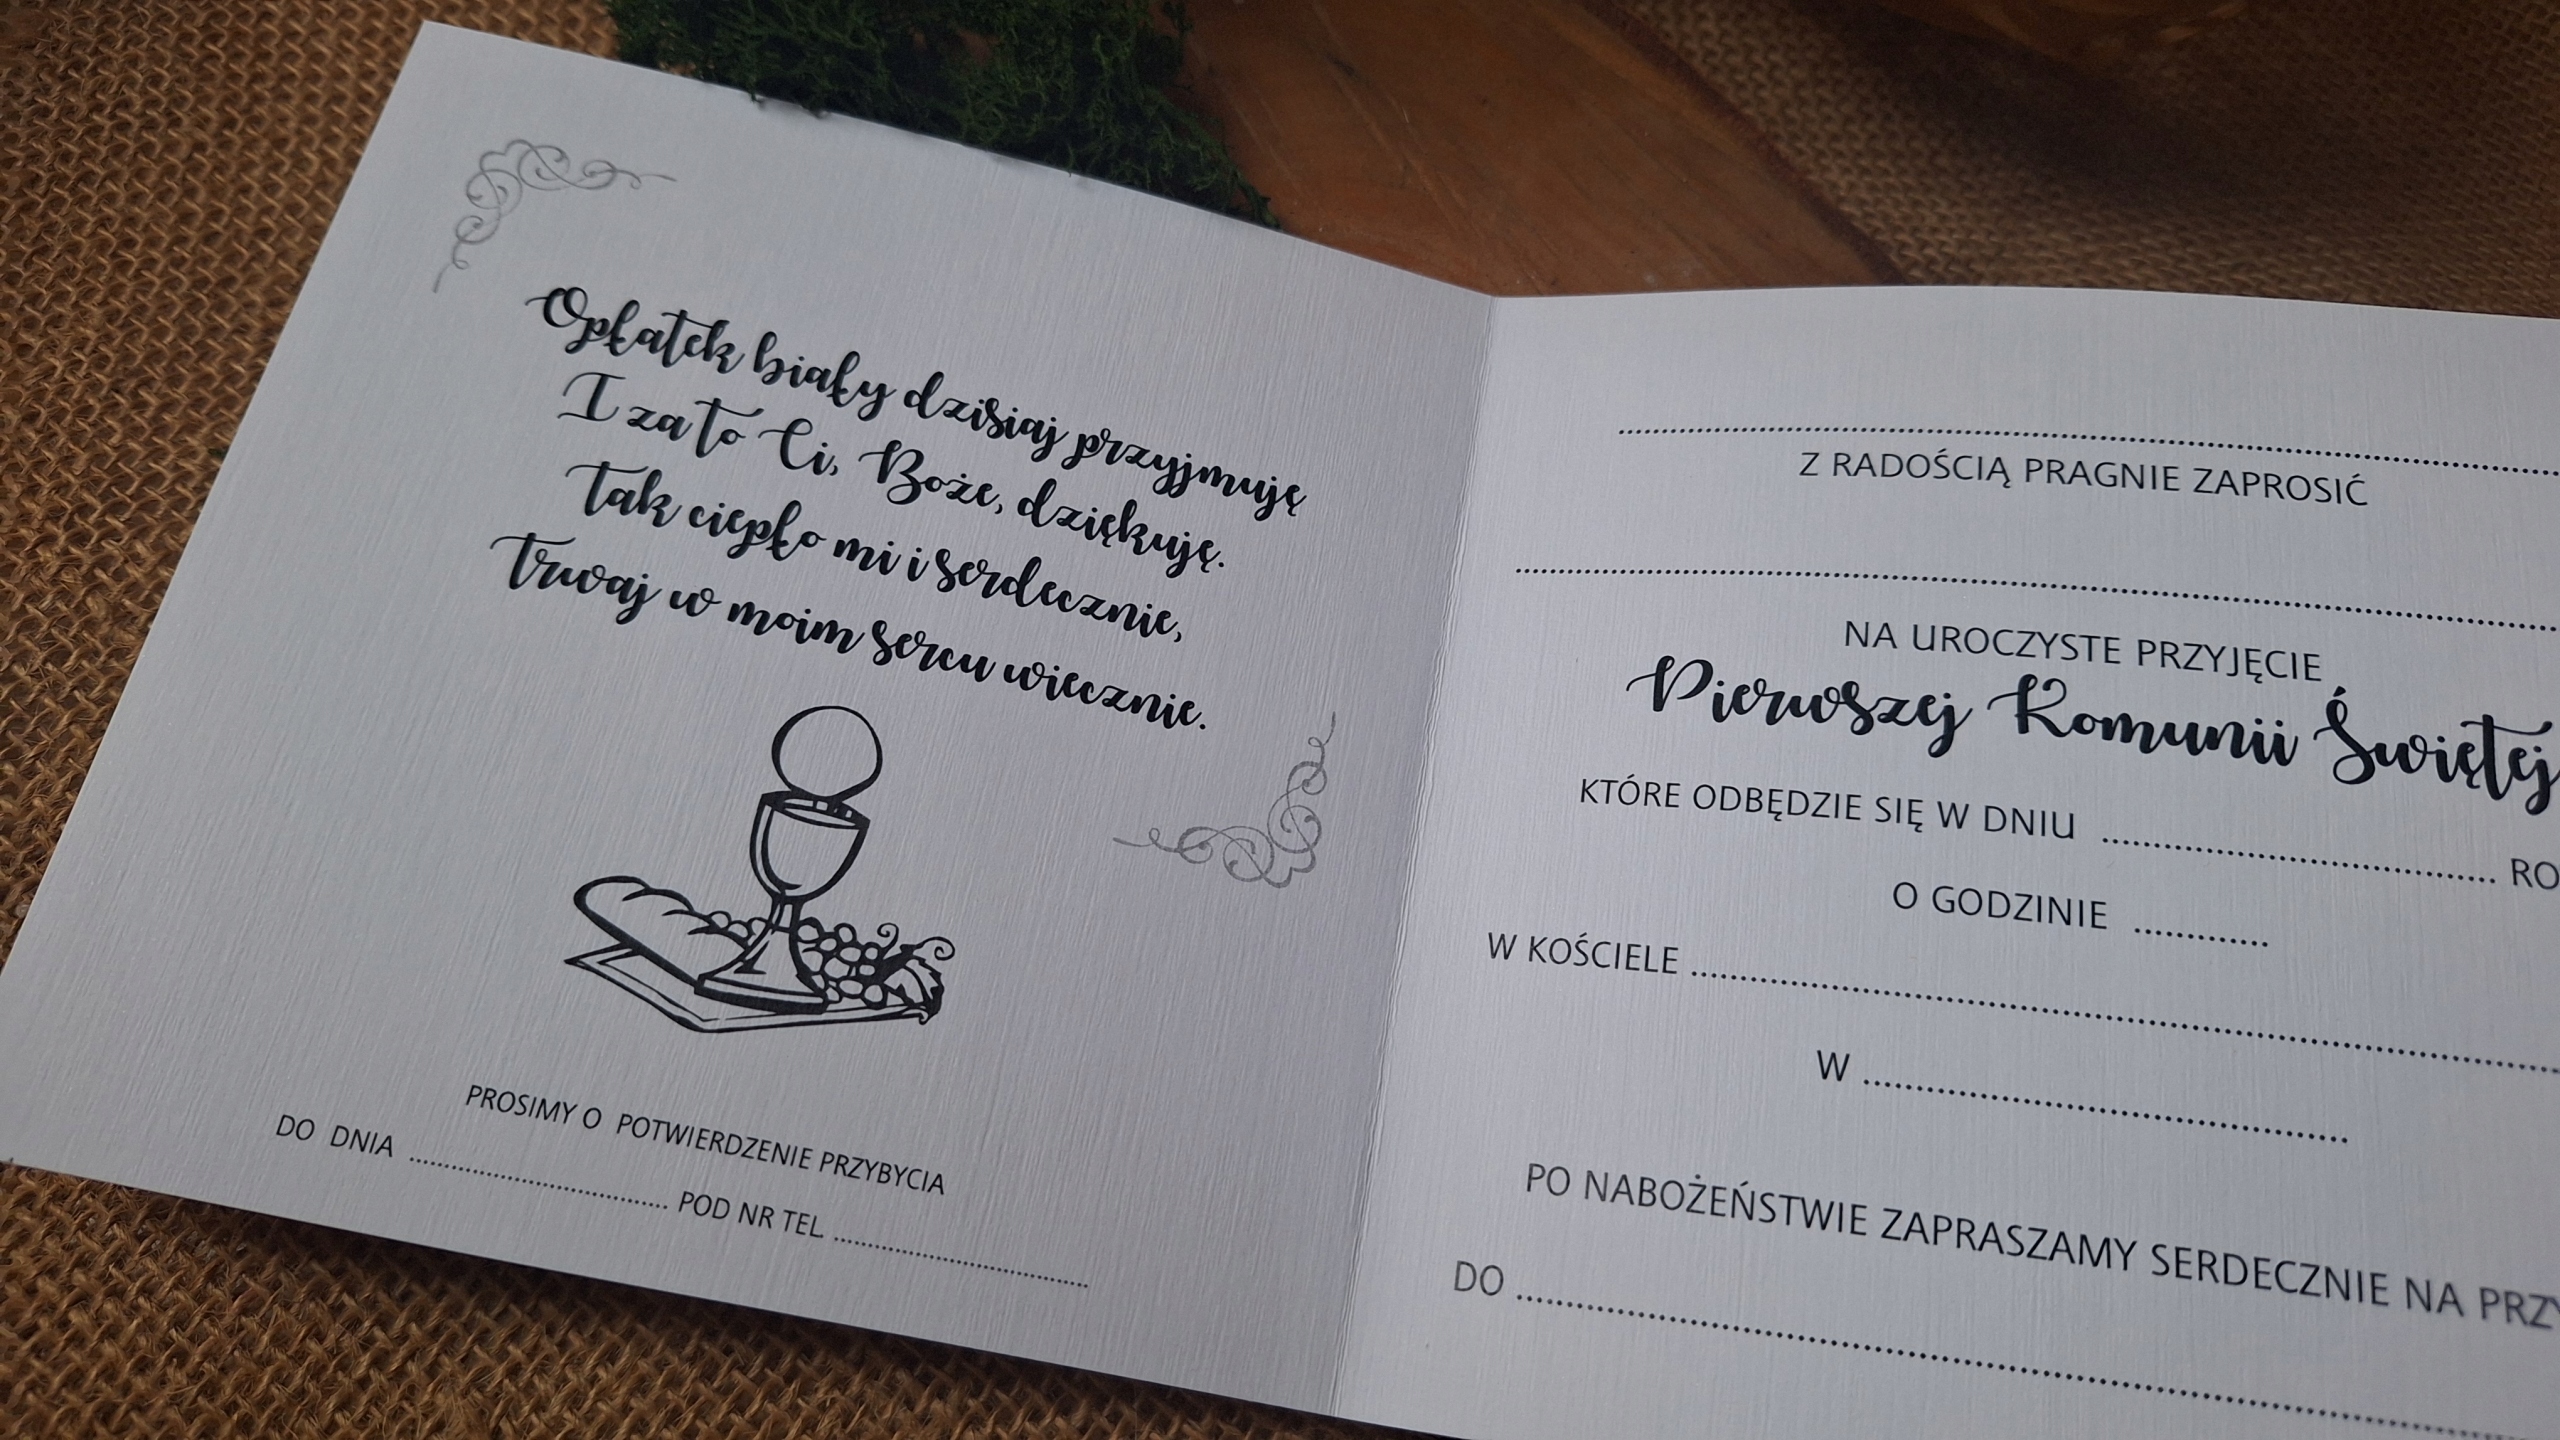 Opłatek biały dzisiaj przyjmuję
I za to Ci, Boże, dziękuję.
Tak ciepło mi i serdecznie,
trwaj w moim sercu wiecznie.
PROSIMY O POTWIERDZENIE PRZYBYCIA
DO DNIA .................................... POD NR TEL. ....................................
....................................
Z RADOŚCIĄ PRAGNIE ZAPROSIĆ
....................................
NA UROCZYSTE PRZYJĘCIE
Pierwszej Komunii Świętej
KTÓRE ODBĘDZIE SIĘ W DNIU .................................... RO
O GODZINIE .............
W KOŚCIELE ....................................
W ....................................
PO NABOŻEŃSTWIE ZAPRASZAMY SERDECZNIE NA PRZY
DO ....................................